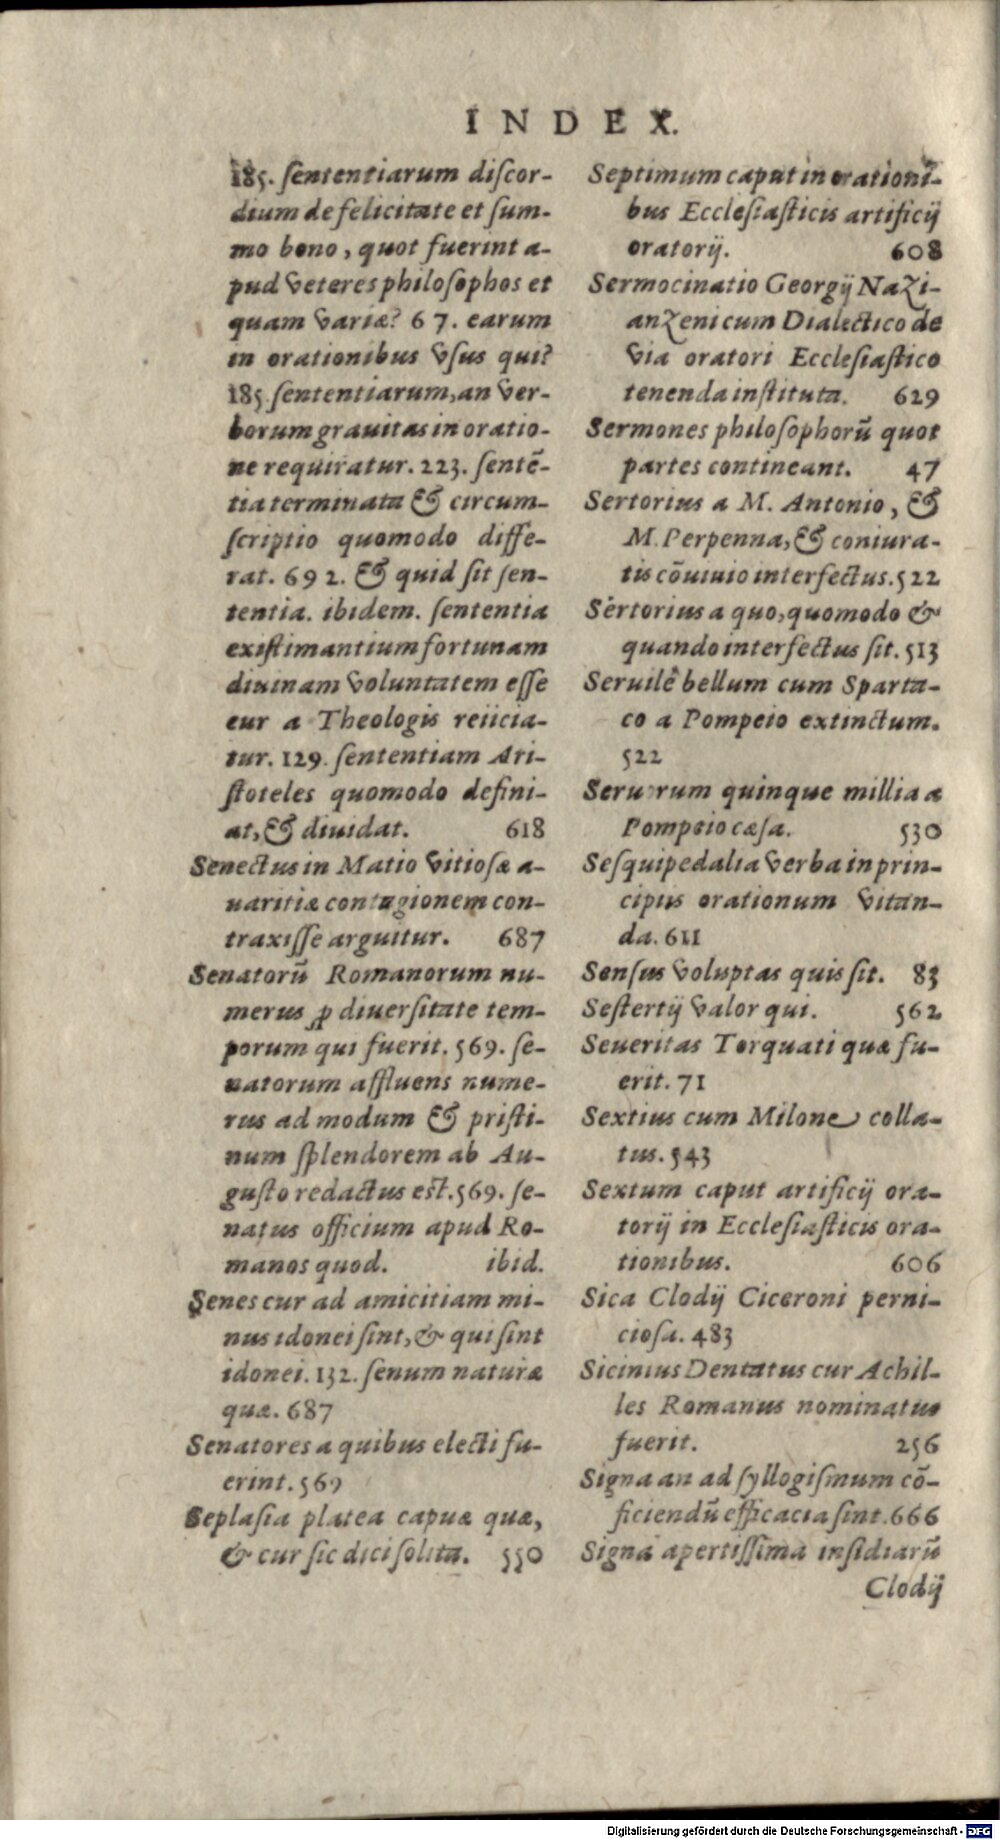 INDEX.
185. ſententiarum diſcor-
dium de felicitate et ſum-
mo bono, quot fuerint a-
pud veteres philoſophos et
quam variæ? 67. earum
in orationibus vſus qui?
185. ſententiarum, an ver-
borum grauitas in oratio-
ne requiratur. 223. ſentē-
tia terminata & circum-
ſcriptio quomodo diffe-
rat. 692. & quid ſit ſen-
tentia. ibidem. ſententia
exiſtimantium fortunam
diuinam voluntatem eſſe
cur a Theologis reiicia-
tur. 129. ſententiam Ari-
ſtoteles quomodo defini-
at, & diuidat. 618
Senectus in Matio vitioſæ a-
uaritiæ contagionem con-
traxiſſe arguitur. 687
Senatorū Romanorum nu-
merus ꝓ diuerſitate tem-
porum qui fuerit. 569. ſe-
natorum affluens nume-
rus ad modum & priſti-
num ſplendorem ab Au-
guſto redactus eſt. 569. ſe-
natus officium apud Ro-
manos quod. ibid.
Senes cur ad amicitiam mi-
nus idonei ſint, & qui ſint
idonei. 132. ſenum natura
quæ. 687
Senatores a quibus electi fu-
erint. 569
Seplaſia platea capuæ quæ,
& cur ſic dici ſolita. 550
Septimum caput in orationi-
bus Eccleſiaſticis artificij
oratorij. 608
Sermocinatio Georgij Nazi-
anzeni cum Dialectico de
via oratori Eccleſiaſtico
tenenda inſtituta. 629
Sermones philoſophorū quot
partes contineant. 47
Sertorius a M. Antonio, &
M. Perpenna, & coniura-
tis cōuiuio interfectus. 522
Sertorius a quo, quomodo &
quando interfectus ſit. 513
Seruile bellum cum Sparta-
co a Pompeio extinctum.
522
Seruorum quinque millia a
Pompeio cæſa. 530
Seſquipedalia verba in prin-
cipiis orationum vitan-
da. 611
Senſus voluptas quis ſit. 83
Seſtertij valor qui. 562
Seueritas Torquati quæ fu-
erit. 71
Sextius cum Milone colla-
tus. 543
Sextum caput artificij ora-
torij in Eccleſiaſticis ora-
tionibus. 606
Sica Clodij Ciceroni perni-
cioſa. 483
Sicinius Dentatus cur Achil-
les Romanus nominatus
fuerit. 256
Signa an ad ſyllogiſmum cō-
ficiendū efficacia ſint. 666
Signa apertiſſima inſidiarū
Clodij
Digitalisierung gefördert durch die Deutsche Forschungsgemeinschaft - DFG